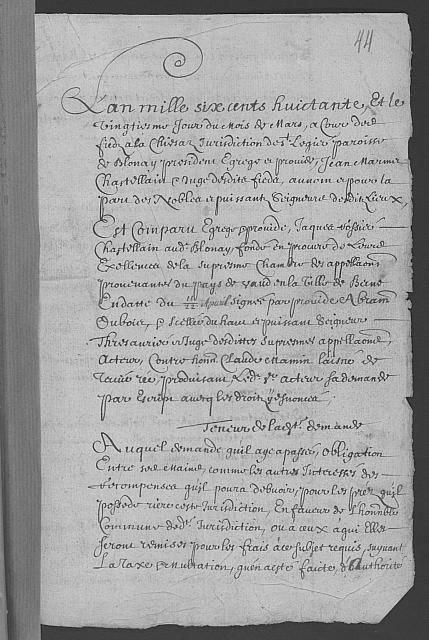 44
L'an mille six cents huictante, Et le
vingtiesme Jour du Mois de Mars, a Cour de
fiedz a la Chiesaz Jurisdiction de St Legier paroisse
de Blonay président Egrege et provide, Jean
Chastellain & Juge desdits fiedz, au nom et pour la
part des Nobles et puissant Seigneurs desdits Lieux,
Est Comparu Egrege et provide, Jaques
Chastellain aud. Blonay, fondé en procure de Leurs
Excellences de la supresme Chambre des appellaōns
provenantes du pays de Vaud en la Ville de Berne
En datte du 11/22 Apvril signée par provide Abram
Dubois, & scellée du haut et puissant Seigneur
Thresaurier et Juge desdites supremes appellaōns,
Acteur, Contre hon. Claude Mamin laisné de
produisant sa demande
par Escript avecq les droits y esnoncés
Teneur de ladte demande
Auquél demande qu'il aye a passér, obligation
Entre ses mains, comme les autres Interesses des
Recompenses qu'il poura debvoir, pour les préz quil
possede riere ceste Jurisdiction, En faveur de L'honnble
Commune dedte Jurisdiction, ou a ceux à qui Elles
seront remises pour les frais à ce subjet requis, suyvant
La Taxe & en acte faicte, d'Authorité